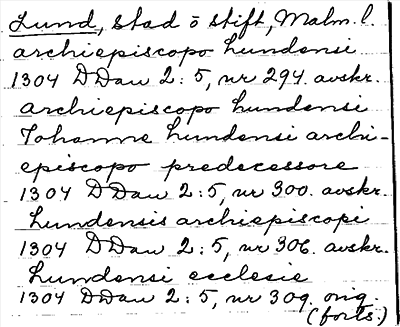 Lund, stad o stift, Malm. l.
archiepiscopo Lundensi
1304 DDan 2:5, nr 294. avskr.
archiepiscopo Lundensi
Johanne Lundensi archi-
episcopo predecessore
1304 DDan 2:5, nr 300. avskr.
Lundensis archiepiscopi
1304 DDan 2:5, nr 306. avskr.
Lundensi ecclesie
1304 DDan 2:5, nr 309. orig.
(forts.)